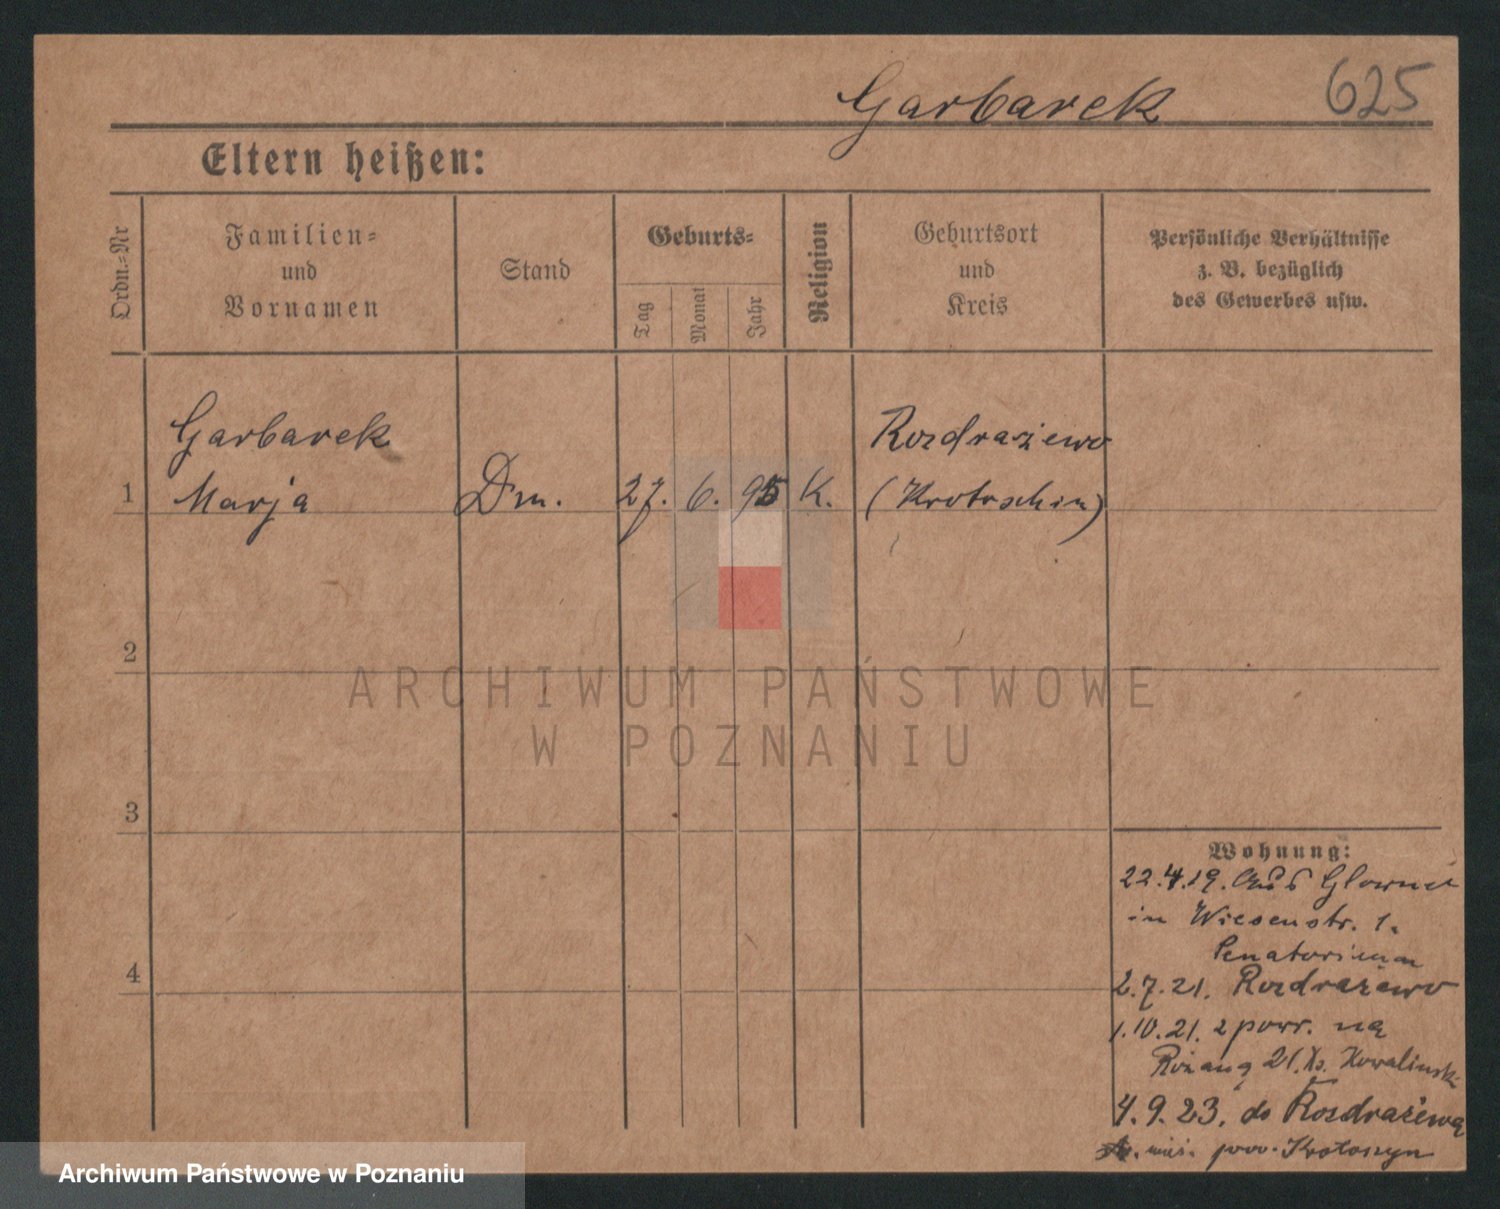 Garbarek
625
Eltern heißen:
Ordn.=Nr
Familien=
und
Vornamen
Stand
Geburts=
Tag
Monat
Jahr
Religion
Geburtsort
und
Kreis
Persönliche Verhältnisse
z. B. bezüglich
des Gewerbes usw.
1
Garbarek
Marja
Dm.
27.
6.
95
K.
Rozdrażewo
(Krotoschin)
2
ARCHIWUM PAŃSTWOWE
W POZNANIU
3
Wohnung:
22.4.19. aus Glowna
in Wiesenstr. 1.
2.7.21. Rozdrażewo
1.10.21. z powr. na
Różaną 21. Kowalinski
4.9.23. do Rozdrażewa
pow. Krotoszyn
4
Archiwum Państwowe w Poznaniu